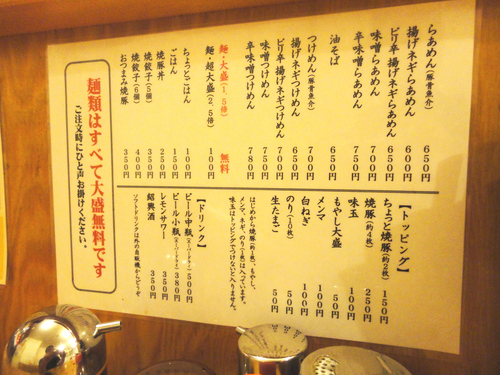 らあめん(豚骨魚介) 650円
揚げネギらあめん 600円
ピリ辛揚げネギらあめん 650円
味噌らあめん 700円
辛味噌らあめん 750円
油そば 650円
つけめん(豚骨魚介) 700円
揚げネギつけめん 650円
ピリ辛揚げネギつけめん 700円
味噌つけめん 750円
辛味噌つけめん 780円
麺・大盛(1.5倍) 無料
麺・超大盛(2.5倍) 100円
ちょっとごはん 100円
ごはん 150円
焼豚丼 250円
焼餃子(5個) 350円
焼餃子(6個) 400円
おつまみ焼豚 350円
【トッピング】
ちょっと焼豚(約2枚) 150円
焼豚(約4枚) 250円
味玉 100円
もやし大盛 50円
メンマ 100円
白ねぎ 100円
のり(10枚) 50円
生たまご 50円
はじめから焼豚(約1枚)、もやし、
メンマ、ネギ、のり(1枚)は入っています。
味玉はトッピングでつけないと入りません。
【ドリンク】
ビール中瓶(スーパードライ) 500円
ビール小瓶(スーパードライ) 380円
レモンサワー 350円
紹興酒 350円
ソフトドリンクは外の自販機からどうぞ
麺類はすべて大盛無料です
ご注文時にひと声お掛けください。